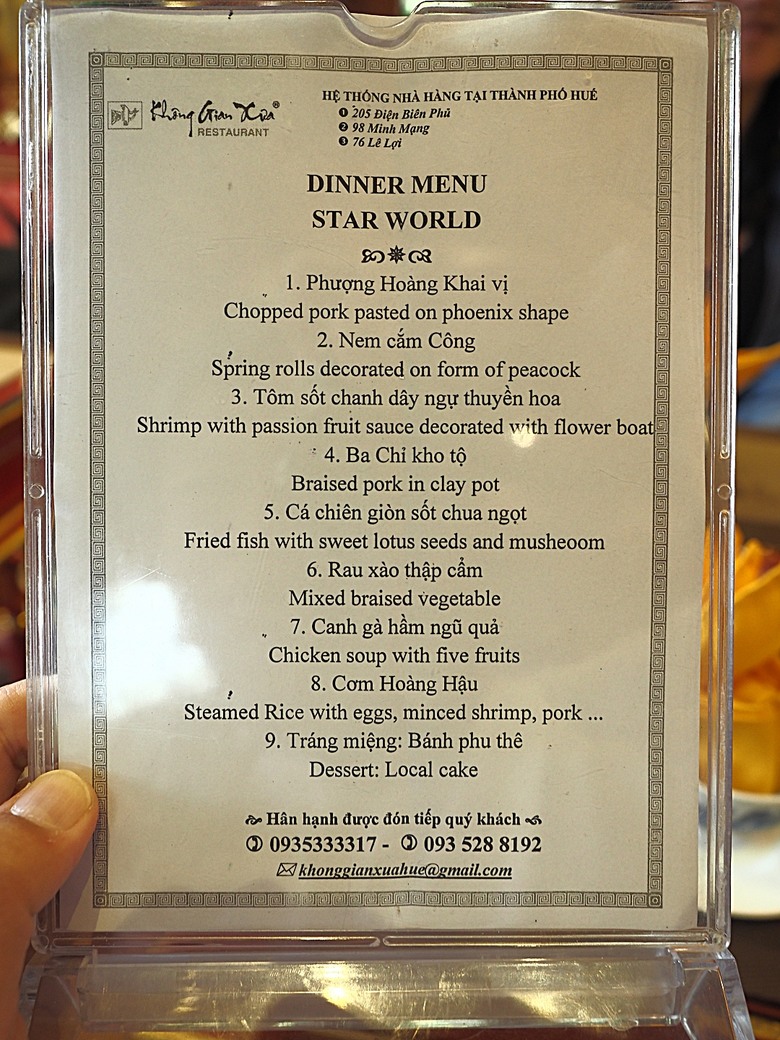 Không Gian Xưa®
RESTAURANT
HỆ THỐNG NHÀ HÀNG TẠI THÀNH PHỐ HUẾ
❶ 205 Điện Biên Phủ
❷ 98 Minh Mạng
❸ 76 Lê Lợi
DINNER MENU
STAR WORLD
1. Phượng Hoàng Khai vị
Chopped pork pasted on phoenix shape
2. Nem cắm Công
Spring rolls decorated on form of peacock
3. Tôm sốt chanh dây ngự thuyền hoa
Shrimp with passion fruit sauce decorated with flower boat
4. Ba Chỉ kho tộ
Braised pork in clay pot
5. Cá chiên giòn sốt chua ngọt
Fried fish with sweet lotus seeds and musheoom
6. Rau xào thập cẩm
Mixed braised vegetable
7. Canh gà hầm ngũ quả
Chicken soup with five fruits
8. Cơm Hoàng Hậu
Steamed Rice with eggs, minced shrimp, pork ...
9. Tráng miệng: Bánh phu thê
Dessert: Local cake
Hân hạnh được đón tiếp quý khách
0935333317 - 093 528 8192
khonggianxuahue@gmail.com